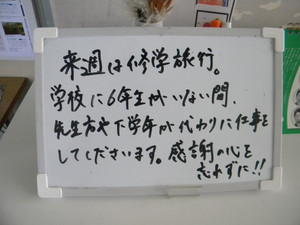 来週は修学旅行。
学校に6年生がいない間、
先生方や下学年が代わりに仕事を
してくださいます。感謝の心を
忘れずに!!